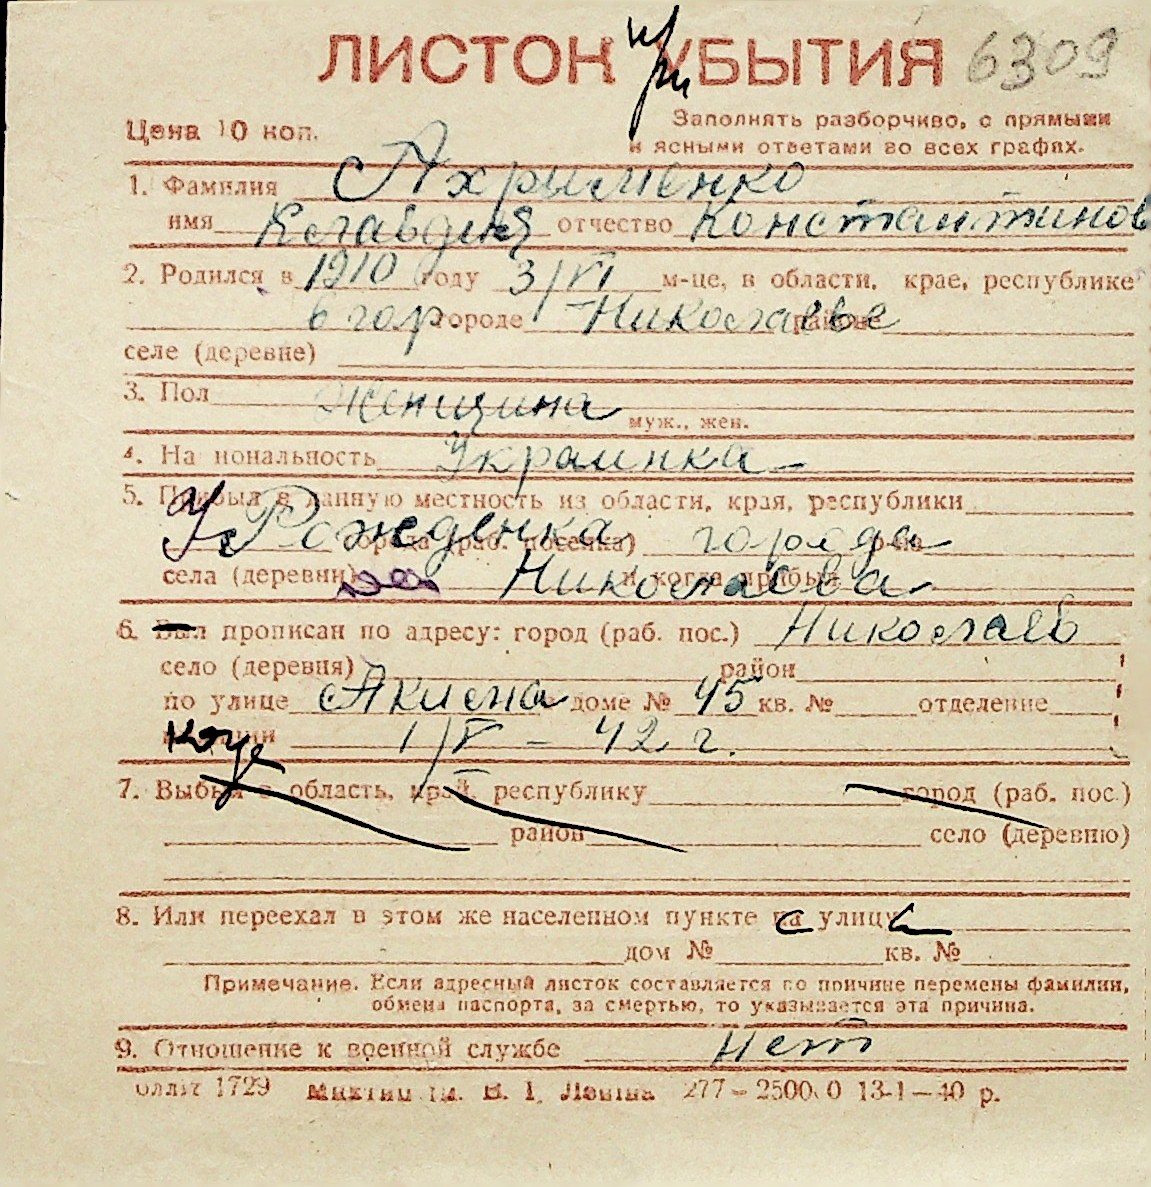 ЛИСТОК УБЫТИЯ при 6309
Цена 10 коп.
Заполнять разборчиво, с прямыми
и ясными ответами во всех графах.
1. Фамилия Ахрименко
имя Клавдия отчество Константинов
2. Родился в 1910 году 3/VI м-це, в области, крае, республике
в гор городе Николаеве районе
селе (деревне)
3. Пол Женщина муж., жен.
4. На иональность Украинка
5. Прибыл в данную местность из области, края, республики
Уроженка города (раб. поселка) города р-на
села (деревни) Николаева и когда прибыл
6. Был прописан по адресу: город (раб. пос.) Николаев
село (деревня) район
по улице Акима доме № 45 кв. № отделение
милиции 1/V - 42 г.
7. Выбыл в область, край, республику город (раб. пос.)
район село (деревню)
8. Или переехал в этом же населенном пункте на с улицу
дом № кв. №
Примечание. Если адресный листок составляется по причине перемены фамилии,
обмена паспорта, за смертью, то указывается эта причина.
9. Отношение к военной службе Нет
1729 В. І. Леніна 277-25000 13-1-40 р.